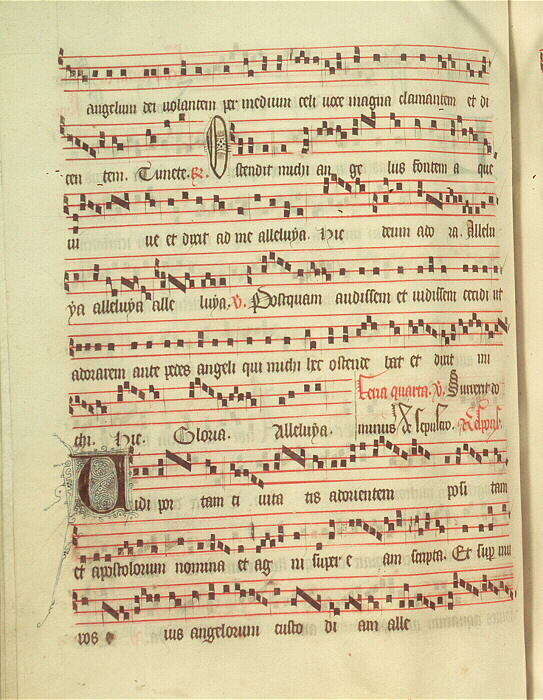 angelum dei volantem per medium celi voce magna clamantem et di
cen tem. Timete. R. Ostendit michi an ge lus fontem a que
vi ve et dixit ad me alleluya. Hic deum ado ra. Allelu
ya alleluya alle luya. V. Postquam audissem et vidissem cecidi ut
adorarem ante pedes angeli qui michi hec ostende bat et dixit mi
chi. Hic. Gloria. Alleluya.
feria quarta. V. Surrexit do
minus de sepulcro.
Vidi por tam ci vita tis adorientem posi tam
et apostolorum nomina et ag ni super e am scripta. Et sup mu
ros e ius angelorum custo di am alle